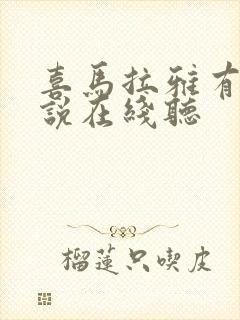 喜馬拉雅有
說在綫聽
榴蓮只喫皮